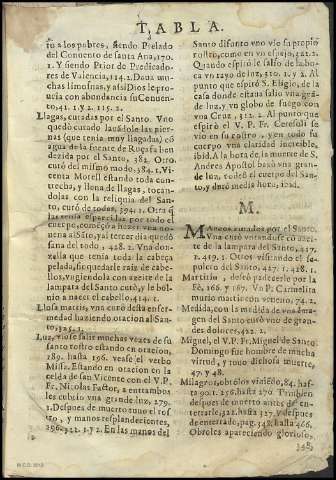 TABLA.
ro a los pobres, siendo Prelado
del Conuento de santa Ana, 170.
1. Y siendo Prior de Predicado-
res de Valencia, 114. 2. Daua mu-
chas limosnas, y assi Dios le pro-
ueia con abundancia su Conuen-
to, 42. 1. y 2. 115. 2.
Llagas, curadas por el Santo. Vno
quedò curado lauandose las pier-
nas (que tenia muy llagadas) cō
agua de la fuente de Ruçafa ben
dezida por el Santo, 382. Otro
curò del mismo modo, 384. 1. Vi-
centa Morell estando toda con-
trecha, y llena de llagas, tocan-
dolas con la reliquia del San-
to, curò de todas, 394. 1. Otra q̄
las tenia esparcidas por todo el
cuerpo, començò a hazer vna no-
uena a el Sāto, y al tercer dia quedò
sana del todo, 428. 1. Vna don-
zella que tenia toda la cabeça
pelada, sin quedarle raiz de cabe-
llos, vngiendola con azeite de la
lampara del Santo curò, y le bol-
uio a nacer el cabello, 414. 1.
Llosa martir, vna curò desta enfer-
medad haziendo oracion al San-
to, 325. 1.
Luz, viosele salir muchas vezes de su
santo rostro estando en oracion,
189. hasta 196. vease el verbo
Missa. Estando en oracion en la
celda de san Vicente con el V. P.
Fr. Nicolas Factor, a entrambos
les cubrio vna grande luz, 279.
1. Despues de muerto tuuo el ros-
tro, y manos resplandecientes,
296. 322. 1. y 2. En las manos del
Santo difunto vno vio su propio
rostro, como en vn espejo, 322. 2.
Quando espirò le salio de la bo-
ca vn rayo de luz, 310. 1. y 2. Al
punto que espirò S. Eligio, de la
casa donde estaua salio vna grā-
de luz, y vn globo de fuego con
vna Cruz, 312. 2. Al punto que es-
pirò el V. P. Fr. Ceresoli se
vio en su rostro, y en todo su
cuerpo vna claridad increible,
ibid. A la hora de la muerte de S.
Andres Apostol baxò vna gran-
de luz, rodeò el cuerpo del San-
to, y durò media hora, ibid.
M.
Mancos curados por el Santo.
Vna curò vntandose cō azei-
te de la lampara del Santo, 417.
1. 419. 1. Otros visitando el se-
pulcro del Santo, 427. 1. 428. 1.
Martirio, desseò padecerlo por la
Fè, 166. y 167. Vn P. Carmelita
murio martir con veneno, 74. 2.
Medida, con la medida de vna ima-
gen del Santo curò vno de gran-
des dolores, 422. 2.
Miguel, el V. P. Fr. Miguel de Santo
Domingo fue hombre de mucha
virtud, y tuuo dichosa muerte,
47. y 48.
Milagros, obrolos viuiẽdo, 84. has-
ta 90. 1. 256. hasta 270. Tambien
despues de muerto antes de en-
terrarle, 322. hasta 327. y despues
de enterrado, pag. 348. hasta 466.
Obroles apareciendo glorioso,